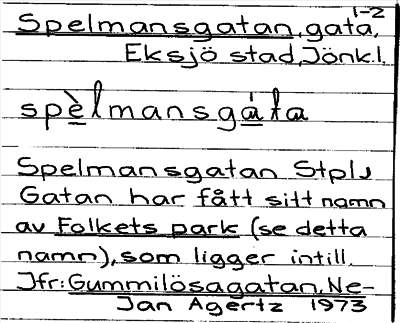 1-2
Spelmansgatan, gata,
Eksjö stad, Jönk.l.
spèlmansgáta
Spelmansgatan Stpl
Gatan har fått sitt namn
av Folkets park (se detta
namn), som ligger intill.
Jfr: Gummilösagatan, Ne-
Jan Agertz 1973